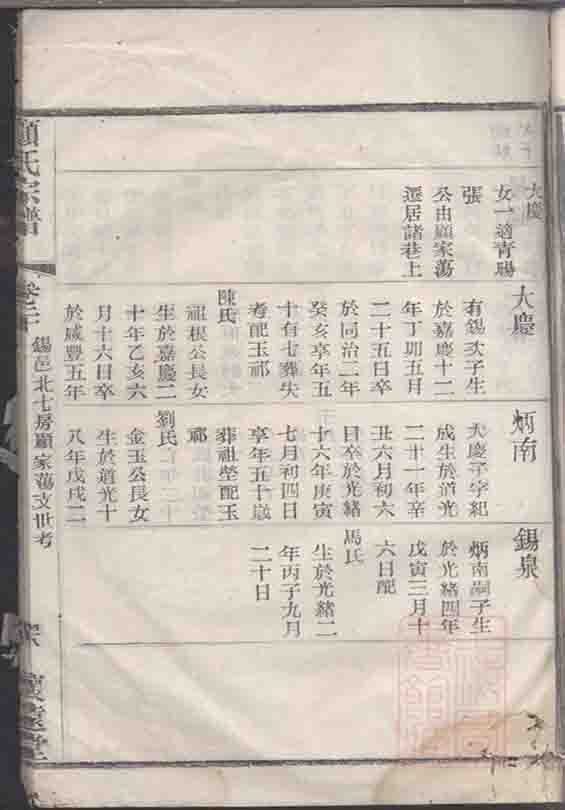 大慶
女一適青暘
張
公由顧家蕩
遷居諸巷上
大慶
有錫次子生
於嘉慶十二
年丁卯五月
二十五日卒
於同治二年
癸亥享年五
十有七葬失
考配玉祁
陳氏
祖根公長女
生於嘉慶二
十年乙亥六
月十六日卒
於咸豐五年
炳南
大慶子字紀
成生於道光
二十一年辛
丑六月初六
日卒於光緒
十六年庚寅
七月初四日
享年五十歲
葬祖塋配玉
祁
劉氏
金玉公長女
生於道光十
八年戊戌二
錫泉
炳南嗣子生
於光緒四年
戊寅三月十
六日配
馬氏
生於光緒二
年丙子九月
二十日
顧氏宗譜
卷二十
錫邑北七房顧家蕩支世考